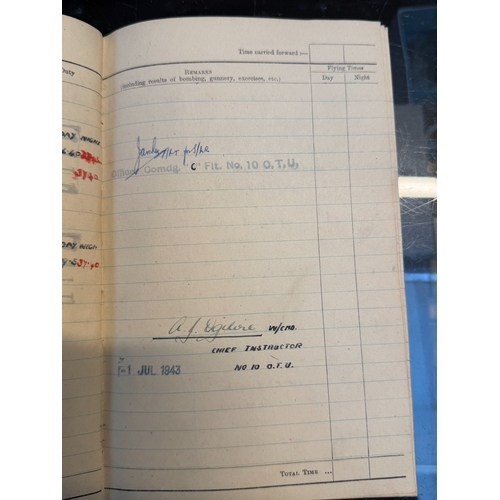 Duty
Time carried forward :—
REMARKS
(including results of bombing, gunnery, exercises, etc.)
Flying Times
Day
Night
F/Lt
Officer Comdg. "C" Flt. No. 10 O.T.U.
37·40
37·40
A. J. Ogilvie W/CMD.
CHIEF INSTRUCTOR
NO 10 O.T.U.
-1 JUL 1943
TOTAL TIME ...